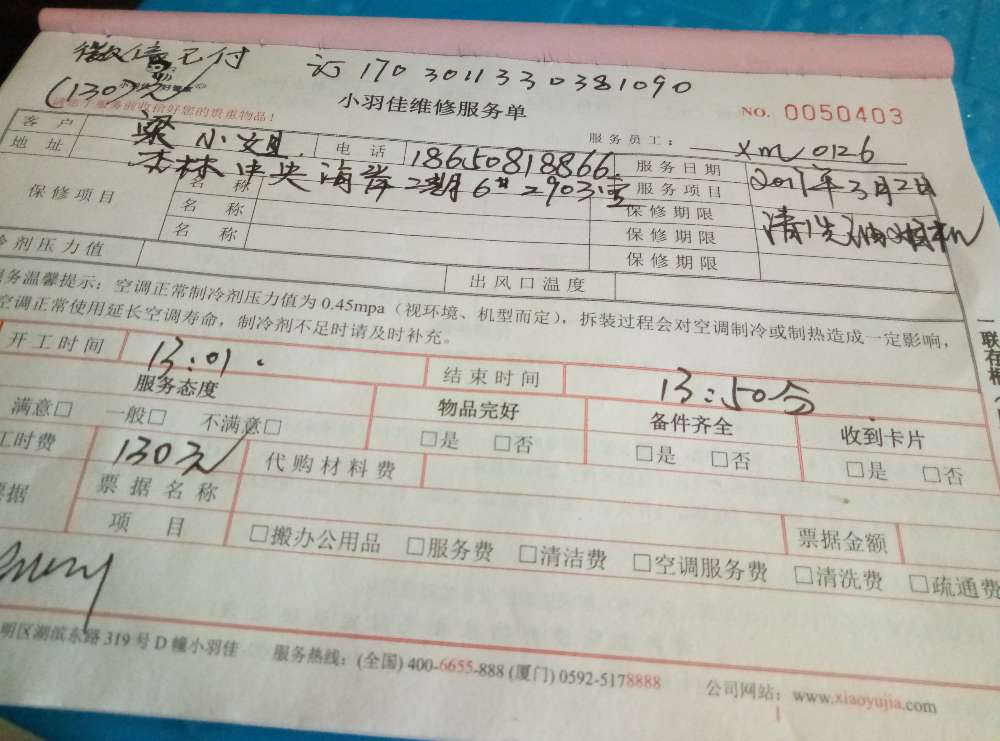 微信已付 订 1703011330381090
(130元)
小羽佳维修服务单 NO. 0050403
服务前收拾好您的贵重物品!
服务员工: xm 0126
客户 梁小姐 电话 18650818866 服务日期 2017年3月2日
地址 杏林中央海岸2期6#2903室 服务项目 清洗油烟机
保修项目 名称 保修期限
名称 保修期限
名称 保修期限
冷剂压力值 出风口温度
服务温馨提示: 空调正常制冷剂压力值为 0.45mpa (视环境、机型而定), 拆装过程会对空调制冷或制热造成一定影响,
空调正常使用延长空调寿命, 制冷剂不足时请及时补充。
开工时间 13:01. 结束时间 13:50分
服务态度 物品完好 备件齐全 收到卡片
满意□ 一般□ 不满意□ □是 □否 □是 □否 □是 □否
工时费 130元 代购材料费
票据 票据名称 票据金额
项目 □搬办公用品 □服务费 □清洁费 □空调服务费 □清洗费 □疏通费
明区湖滨东路 319 号 D 幢小羽佳 服务热线: (全国) 400-6655-888 (厦门) 0592-5178888 公司网站: www.xiaoyujia.com